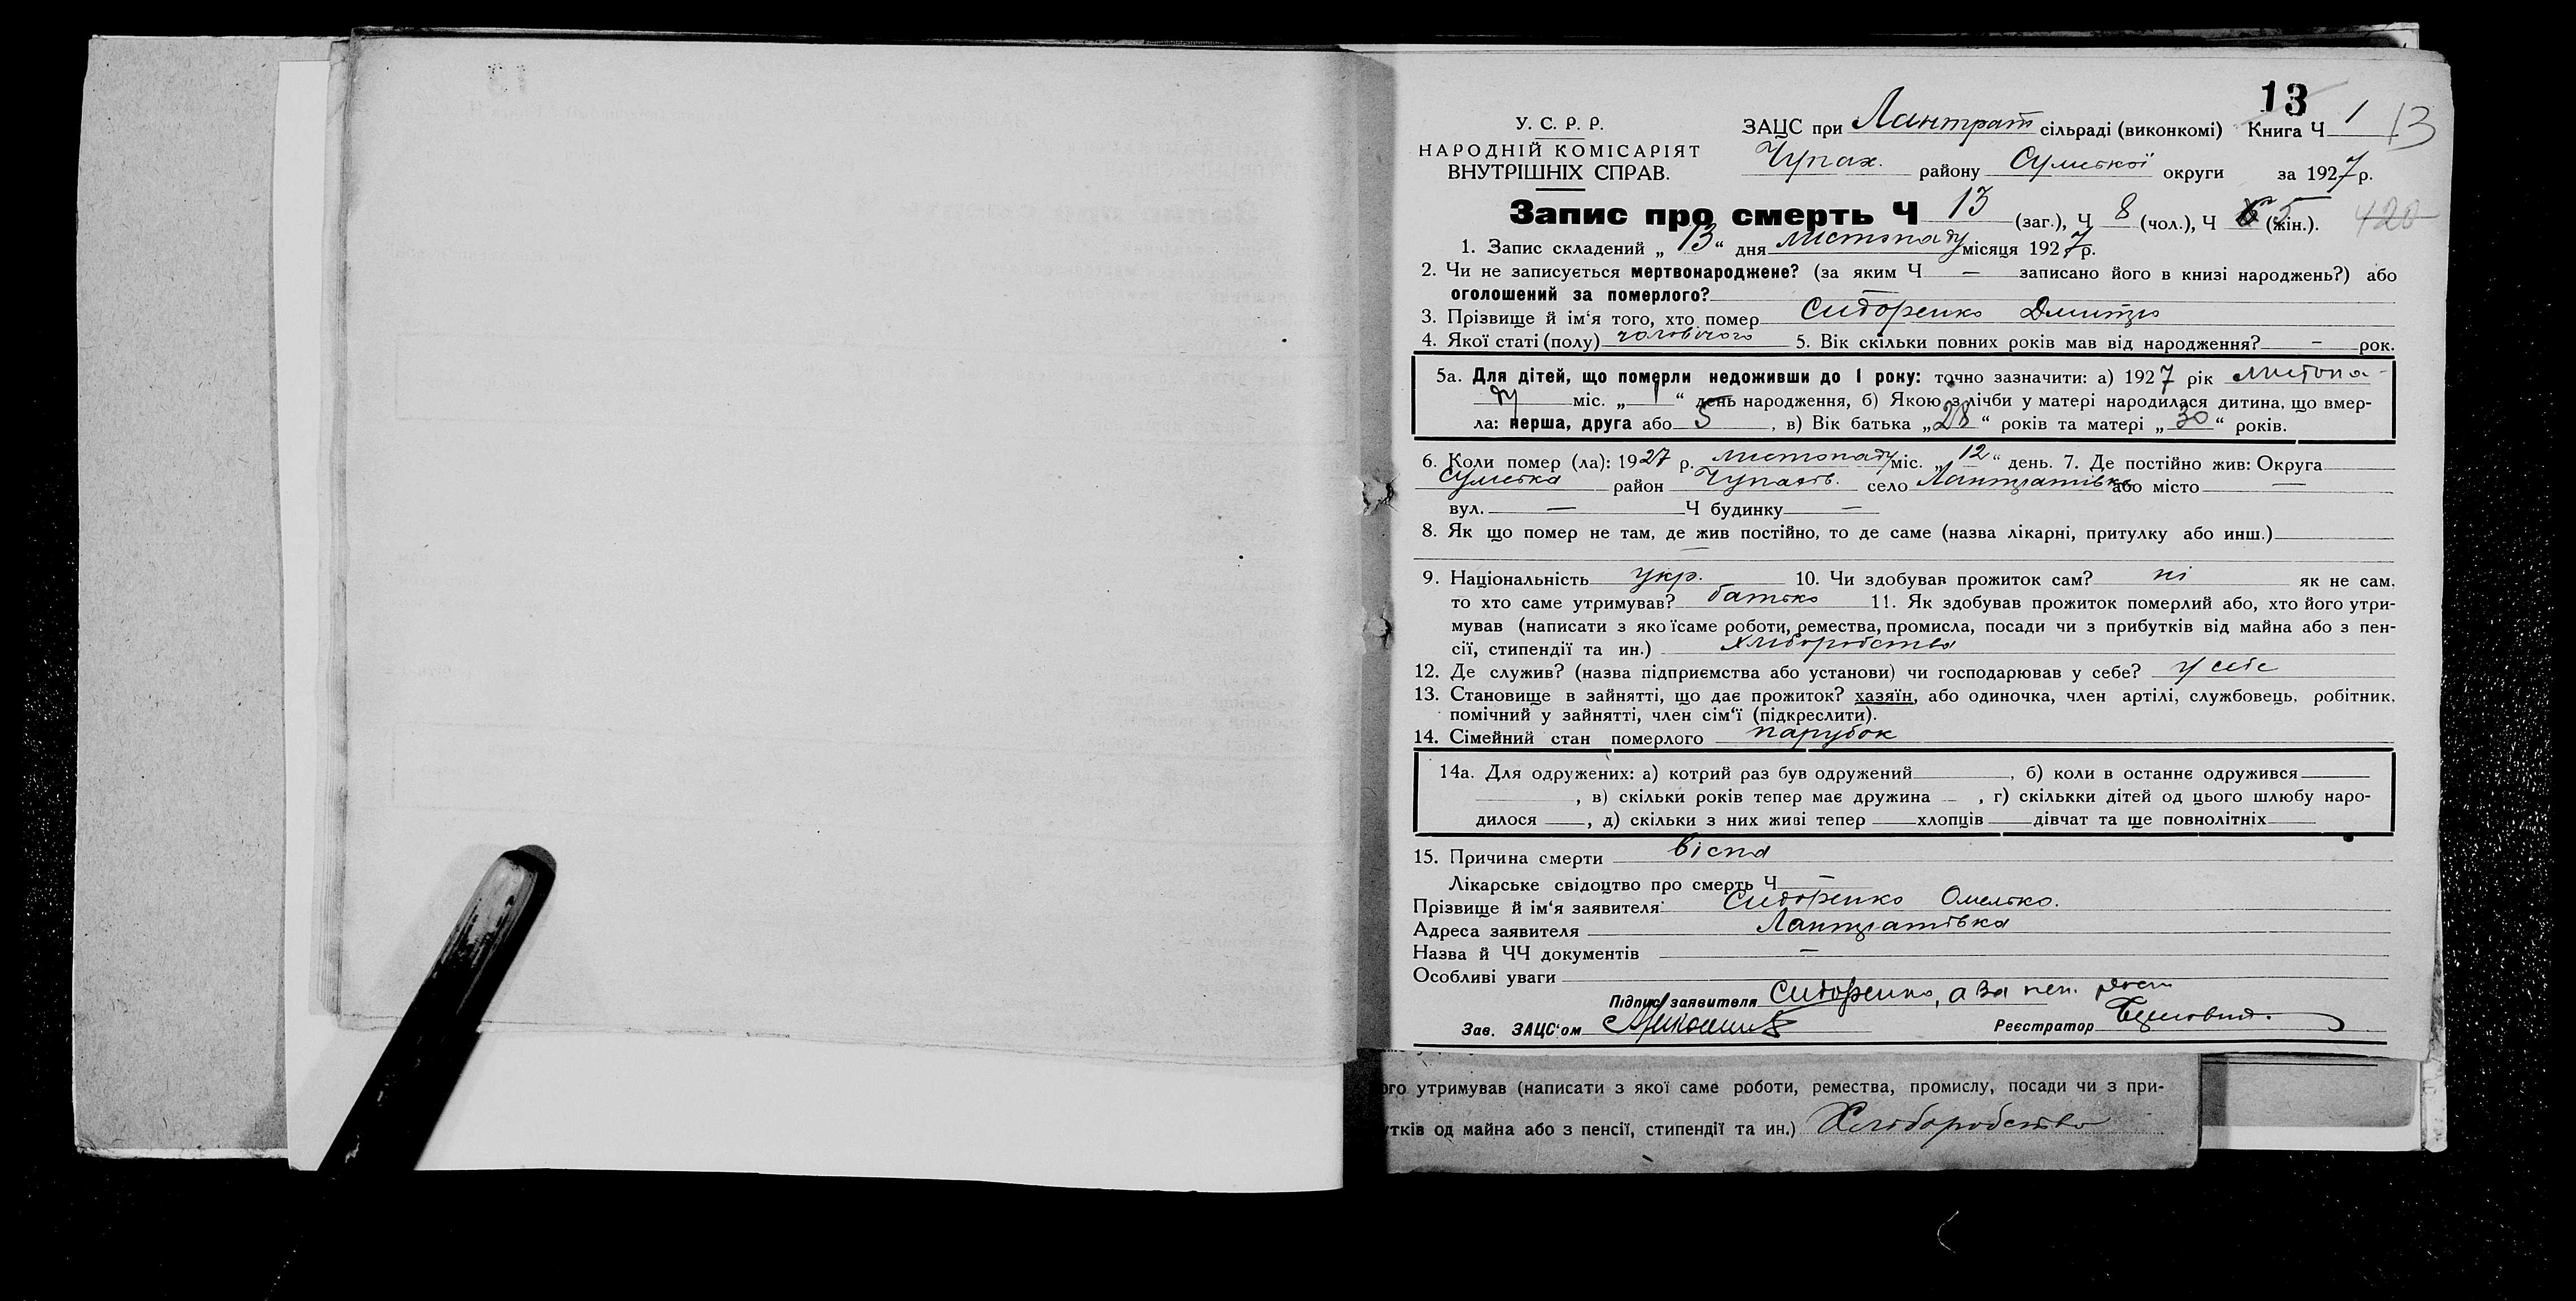 13
У. С. Р. Р.
НАРОДНІЙ КОМІСАРІЯТ
ВНУТРІШНІХ СПРАВ.
ЗАЦС при Лантрат сільраді (виконкомі) Книга Ч 1 13
Чупах. району Сумської округи за 1927 р.
Запис про смерть Ч 13 (заг.), Ч 8 (чол.), Ч 5 (жін.). 420
1. Запис складений „ 13 “ дня листопаду місяця 1927 р.
2. Чи не записується мертвонароджене? (за яким Ч — записано його в книзі народжень?) або
оголошений за померлого? —
3. Прізвище й ім‘я того, хто помер Сидоренко Дмитро
4. Якої статі (полу) чоловічого 5. Вік скільки повних років мав від народження? — рок.
5а. Для дітей, що померли недоживши до 1 року: точно зазначити: а) 1927 рік листопа-
ду міс. „ 1 “ день народження, б) Якою з лічби у матері народилася дитина, що вмер-
ла: перша, друга або 5, в) Вік батька „28“ років та матері „30“ років.
6. Коли помер (ла): 1927 р. листопаду міс. „ 12 “ день. 7. Де постійно жив: Округа
Сумська район Чупахів. село Лантратівка або місто —
вул. — Ч будинку —
8. Як що помер не там, де жив постійно, то де саме (назва лікарні, притулку або инш.)
—
9. Національність укр. 10. Чи здобував прожиток сам? ні як не сам,
то хто саме утримував? батько 11. Як здобував прожиток померлий або, хто його утри-
мував (написати з яко їсаме роботи, ремества, промисла, посади чи з прибутків від майна або з пен-
сії, стипендії та ин.) хліборобства
12. Де служив? (назва підприємства або установи) чи господарював у себе? у себе
13. Становище в зайнятті, що дає прожиток? хазяїн, або одиночка, член артілі, службовець, робітник,
помічний у зайнятті, член сім‘ї (підкреслити).
14. Сімейний стан померлого парубок
14а. Для одружених: а) котрий раз був одружений, б) коли в останнє одружився
, в) скільки років тепер має дружина —, г) скількки дітей од цього шлюбу наро-
дилося, д) скільки з них живі тепер хлопців дівчат та ще повнолітніх
15. Причина смерти віспа
Лікарське свідоцтво про смерть Ч —
Прізвище й ім‘я заявителя: Сидоренко Омелько.
Адреса заявителя Лантратівка
Назва й ЧЧ документів —
Особливі уваги
Підпис заявителя Сидоренко, а за неп.
Зав. ЗАЦС‘ом Реєстратор
ого утримував (написати з якої саме роботи, ремества, промислу, посади чи з при-
утків од майна або з пенсії, стипендії та ин.) Хліборобство